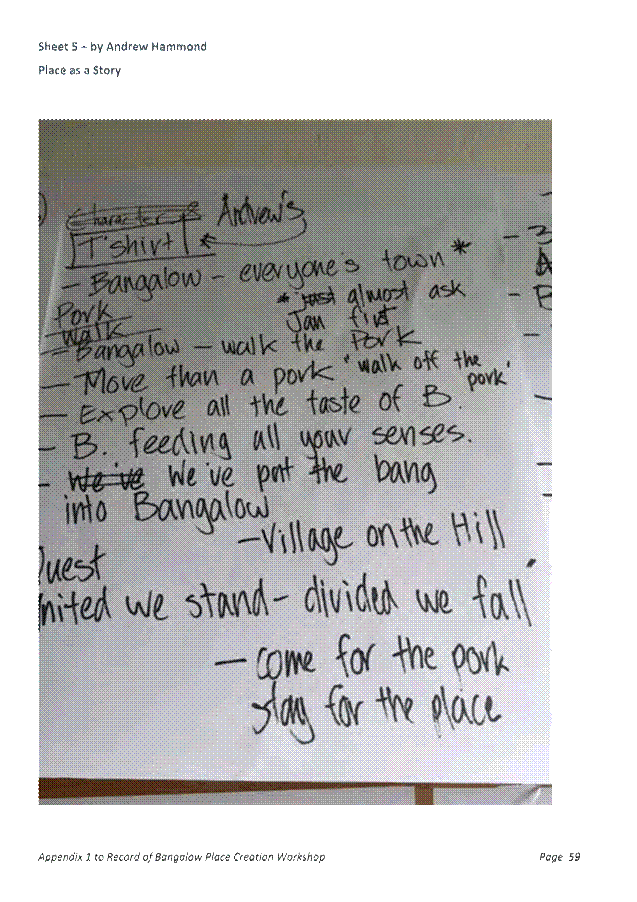 Sheet 5 – by Andrew Hammond
Place as a Story
Character Andrew's
T'shirt
– Bangalow – everyone's town *
* just almost ask
Pork Jan first
Walk
– Bangalow – walk the Pork
– Move than a pork 'walk off the pork'
– Explove all the taste of B.
– B. feeding all your senses.
– We've We've put the bang
into Bangalow
– Village on the Hill
Quest
United we stand – divided we fall"
– come for the pork
stay for the place
Appendix 1 to Record of Bangalow Place Creation Workshop Page 59